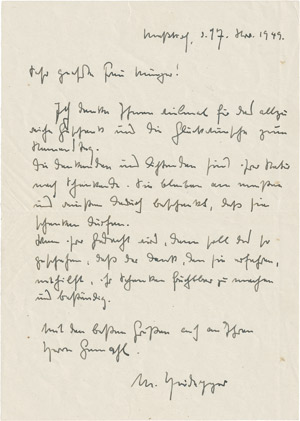 Meßkirch, d. 17. Nov. 1949.
Sehr geehrte Frau Munger!
Ich danke Ihnen einmal für das allzu
reiche Geschenk und die Glückwünsche zum
Namenstag.
Die Denkenden und Dichtenden sind
nach Schenkende. Sie bleiben am
und dadurch beschenkt, daß sie
schenken dürfen.
Wenn gedacht wird, dann soll das so
geschehen, daß der Dank, den sie erfahren,
mithilft, ihr Schenken fruchtbar zu machen
und beständig.
Mit den besten Grüßen auch an Ihren
Herrn Gemahl
M. Heidegger